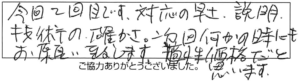 今回で2回目です。対応の早さ、説明、
技術の確かさ。次回何かの時にも
お願い致します。適正価格だと
思います。
ご協力ありがとうございました。